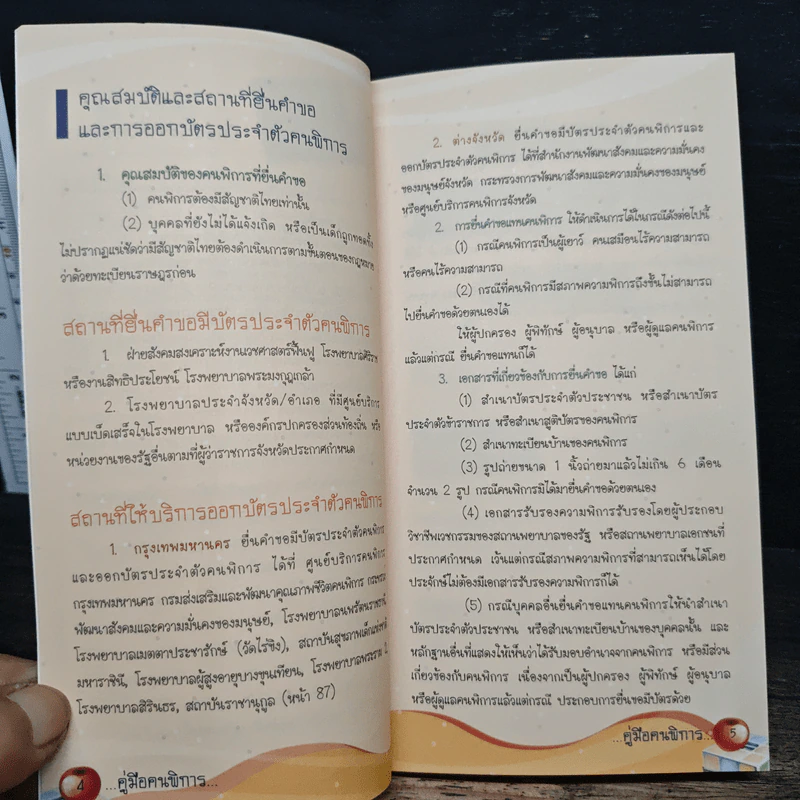 คุณสมบัติและสถานที่ยื่นคำขอ
และการออกบัตรประจำตัวคนพิการ
1. คุณสมบัติของคนพิการที่ยื่นคำขอ
(1) คนพิการต้องมีสัญชาติไทยเท่านั้น
(2) บุคคลที่ยังไม่ได้แจ้งเกิด หรือเป็นเด็กถูกทอดทิ้ง
ไม่ปรากฏแน่ชัดว่ามีสัญชาติไทยต้องดำเนินการตามขั้นตอนของกฎหมาย
ว่าด้วยทะเบียนราษฎรก่อน
สถานที่ยื่นคำขอมีบัตรประจำตัวคนพิการ
1. ฝ่ายสังคมสงเคราะห์งานเวชศาสตร์ฟื้นฟู โรงพยาบาลศิริราช
หรืองานสิทธิประโยชน์ โรงพยาบาลพระมงกุฎเกล้า
2. โรงพยาบาลประจำจังหวัด/อำเภอ ที่มีศูนย์บริการ
แบบเบ็ดเสร็จในโรงพยาบาล หรือองค์กรปกครองส่วนท้องถิ่น หรือ
หน่วยงานของรัฐอื่นตามที่ผู้ว่าราชการจังหวัดประกาศกำหนด
สถานที่ให้บริการออกบัตรประจำตัวคนพิการ
1. กรุงเทพมหานคร ยื่นคำขอมีบัตรประจำตัวคนพิการ
และออกบัตรประจำตัวคนพิการ ได้ที่ ศูนย์บริการคนพิการ
กรุงเทพมหานคร กรมส่งเสริมและพัฒนาคุณภาพชีวิตคนพิการ กระทรวง
พัฒนาสังคมและความมั่นคงของมนุษย์, โรงพยาบาลนพรัตนราชธานี
โรงพยาบาลเมตตาประชารักษ์ (วัดไร่ขิง), สถาบันสุขภาพเด็กแห่งชาติ
มหาราชินี, โรงพยาบาลผู้สูงอายุบางขุนเทียน, โรงพยาบาลพระราม 2
โรงพยาบาลสิรินธร, สถาบันราชานุกูล (หน้า 87)
4 ...คู่มือคนพิการ...
2. ต่างจังหวัด ยื่นคำขอมีบัตรประจำตัวคนพิการและ
ออกบัตรประจำตัวคนพิการ ได้ที่สำนักงานพัฒนาสังคมและความมั่นคง
ของมนุษย์จังหวัด กระทรวงการพัฒนาสังคมและความมั่นคงของมนุษย์
หรือศูนย์บริการคนพิการจังหวัด
2. การยื่นคำขอแทนคนพิการ ให้ดำเนินการได้ในกรณีดังต่อไปนี้
(1) กรณีคนพิการเป็นผู้เยาว์ คนเสมือนไร้ความสามารถ
หรือคนไร้ความสามารถ
(2) กรณีที่คนพิการมีสภาพความพิการถึงขั้นไม่สามารถ
ไปยื่นคำขอด้วยตนเองได้
ให้ผู้ปกครอง ผู้พิทักษ์ ผู้อนุบาล หรือผู้ดูแลคนพิการ
แล้วแต่กรณี ยื่นคำขอแทนก็ได้
3. เอกสารที่เกี่ยวข้องกับการยื่นคำขอ ได้แก่
(1) สำเนาบัตรประจำตัวประชาชน หรือสำเนาบัตร
ประจำตัวข้าราชการ หรือสำเนาสูติบัตรของคนพิการ
(2) สำเนาทะเบียนบ้านของคนพิการ
(3) รูปถ่ายขนาด 1 นิ้วถ่ายมาแล้วไม่เกิน 6 เดือน
จำนวน 2 รูป กรณีคนพิการมิได้มายื่นคำขอด้วยตนเอง
(4) เอกสารรับรองความพิการรับรองโดยผู้ประกอบ
วิชาชีพเวชกรรมของสถานพยาบาลของรัฐ หรือสถานพยาบาลเอกชนที่
ประกาศกำหนด เว้นแต่กรณีสภาพความพิการที่สามารถเห็นได้โดย
ประจักษ์ไม่ต้องมีเอกสารรับรองความพิการก็ได้
(5) กรณีบุคคลอื่นยื่นคำขอแทนคนพิการให้นำสำเนา
บัตรประจำตัวประชาชน หรือสำเนาทะเบียนบ้านของบุคคลนั้น และ
หลักฐานอื่นที่แสดงให้เห็นว่าได้รับมอบอำนาจจากคนพิการ หรือมีส่วน
เกี่ยวข้องกับคนพิการ เนื่องจากเป็นผู้ปกครอง ผู้พิทักษ์ ผู้อนุบาล
หรือผู้ดูแลคนพิการแล้วแต่กรณี ประกอบการยื่นขอมีบัตรด้วย
...คู่มือคนพิการ... 5